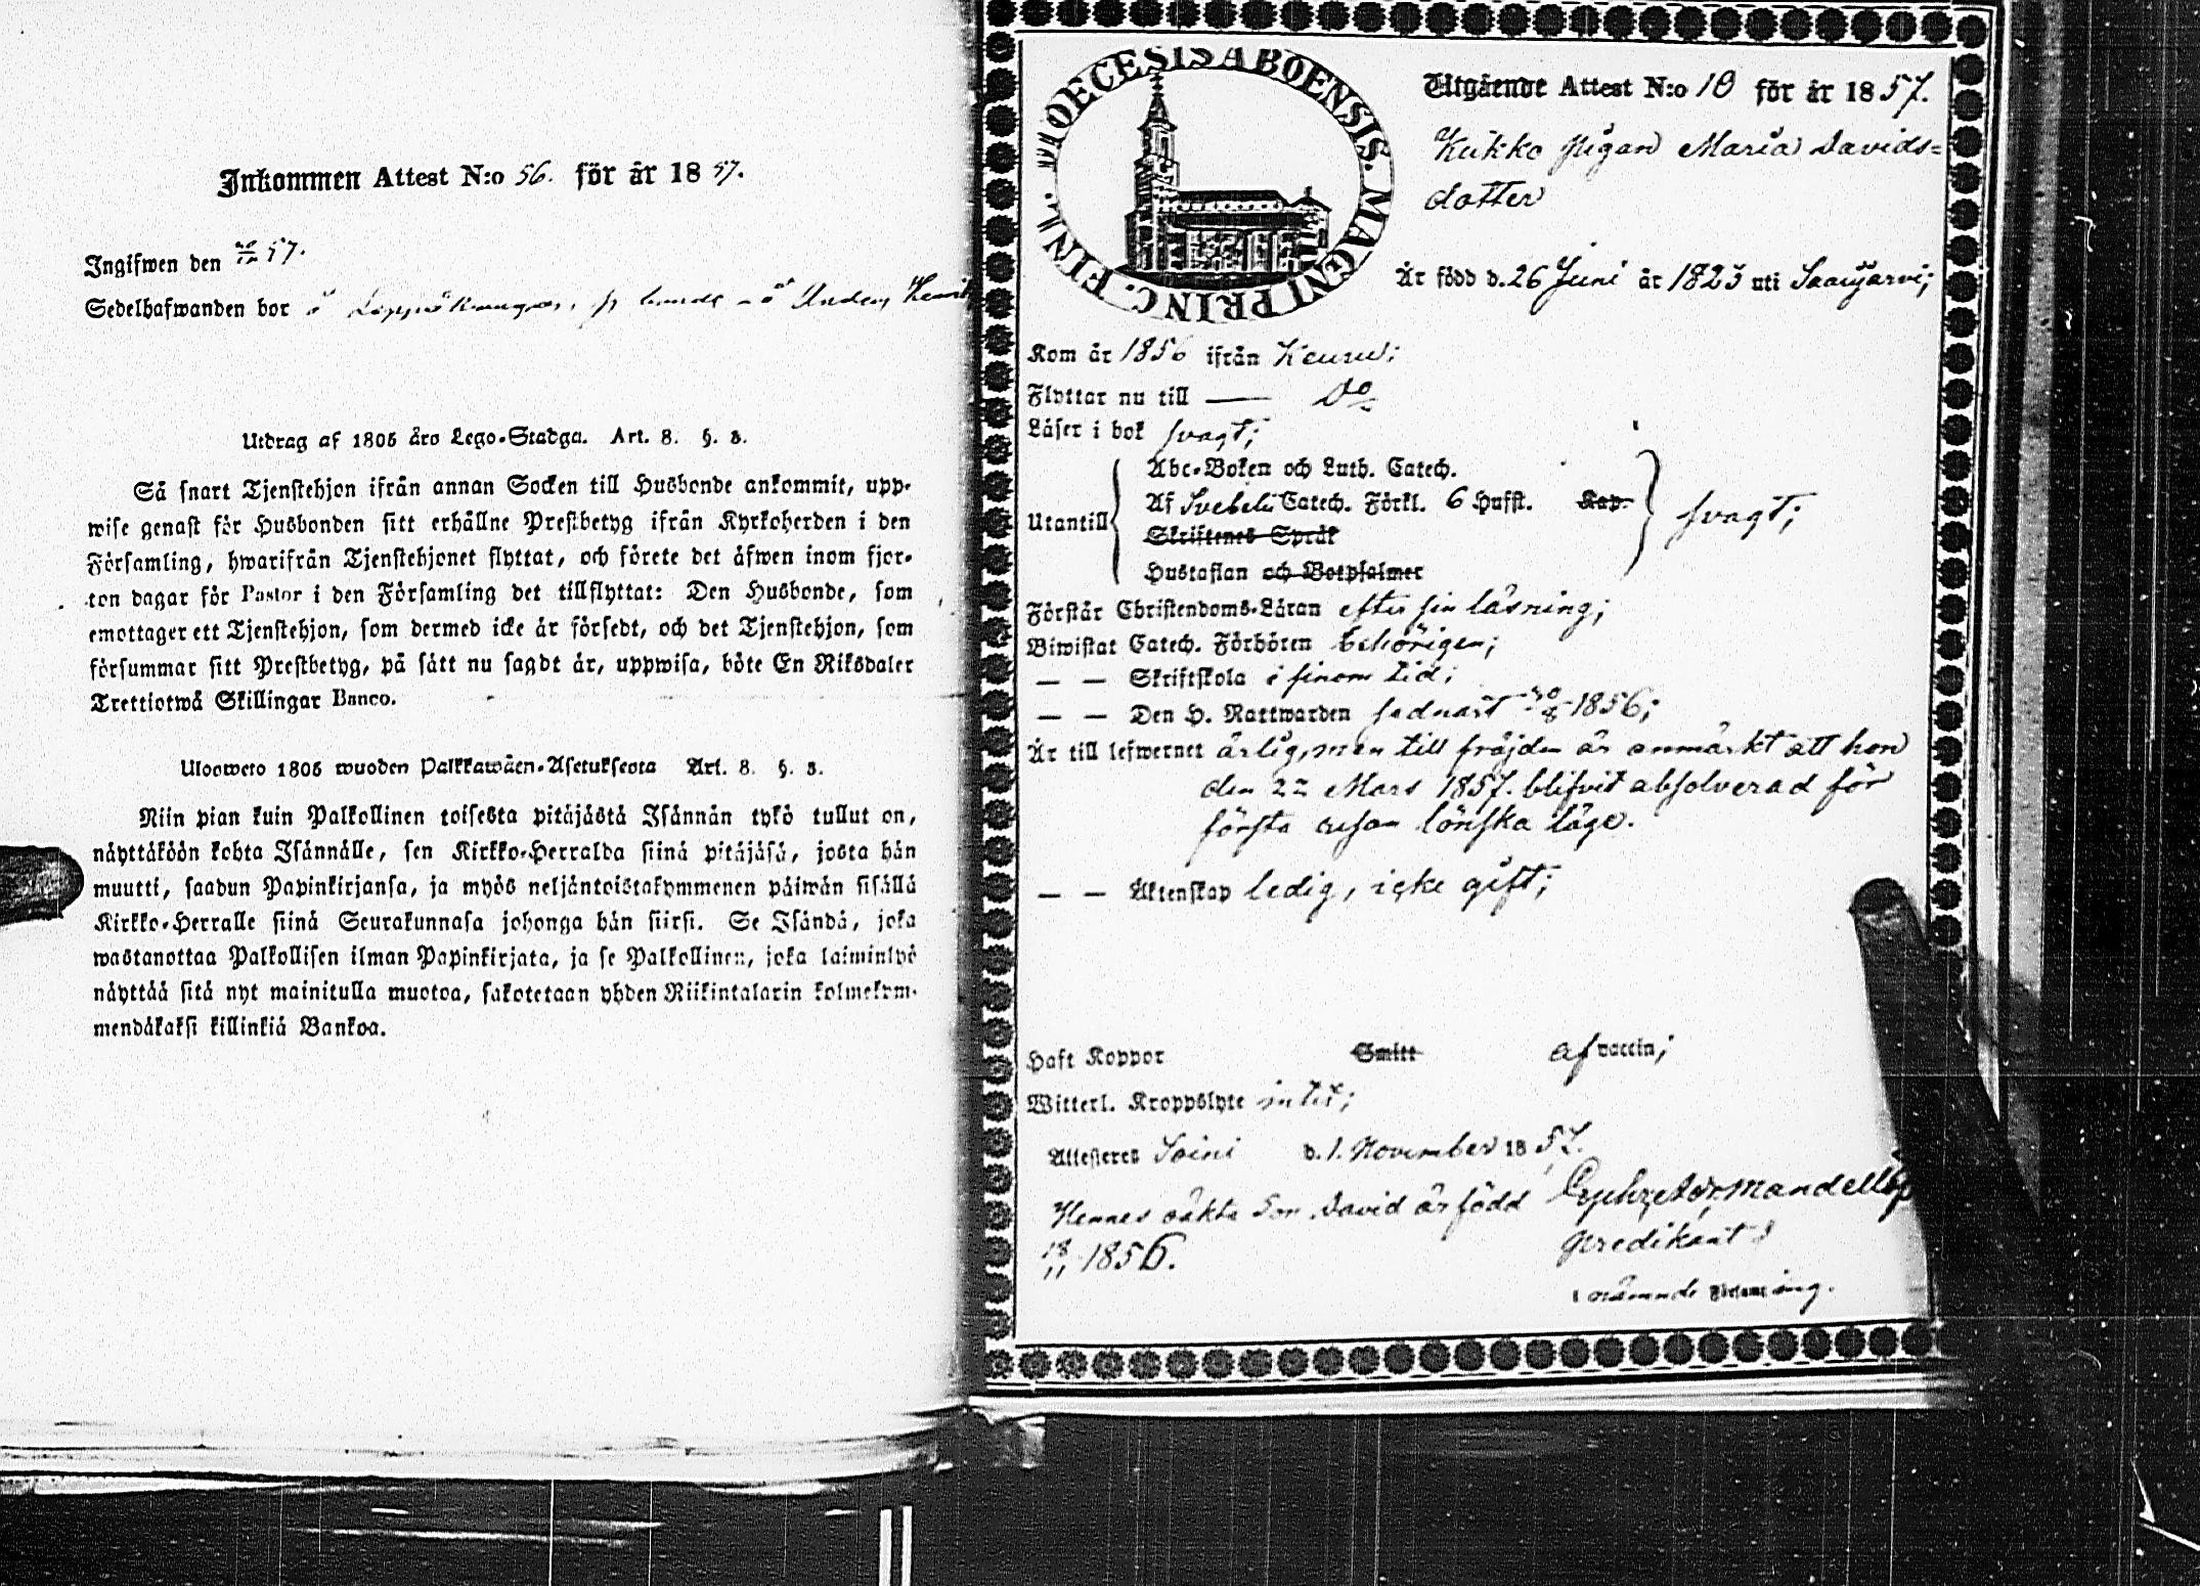 Inkommen Attest N:o 56. för år 1857.
Ingifwen den 57.
Sedelhafwanden bor
Utdrag af 1805 års Lego-Stadga. Art. 8. §. 3.
Så snart Tjenstehjon ifrån annan Socken till Husbonde ankommit, upp-
wise genast för Husbonden sitt erhållne Prestbetyg ifrån Kyrkoherden i den
Församling, hwarifrån Tjenstehjonet flyttat, och förete det äfwen inom fjor-
ton dagar för Pastor i den Församling det tillflyttat: Den Husbonde, som
emottager ett Tjenstehjon, som dermed icke är försedt, och det Tjenstehjon, som
försummar sitt Prestbetyg, på sätt nu sagdt är, uppwisa, böte En Riksdaler
Trettiotwå Skillingar Banco.
Ulosweto 1805 wuoden Palkkawäen-Asetuksesta Art. 8. §. 3.
Niin pian kuin Palkollinen toisesta pitäjästä Isännän tykö tullut on,
näyttäköön kohta Isännälle, sen Kirkko-Herralda siinä pitäjäsä, josta hän
muutti, saadun Papinkirjansa, ja myös neljäntoistakymmenen päiwän sisällä
Kirkko-Herralle siinä Seurakunnasa johonga hän siirsi. Se Isändä, joka
wastanottaa Palkollisen ilman Papinkirjata, ja se Palkollinen, joka laiminlyö
näyttää sitä nyt mainitulla muotoa, sakotetaan yhden Riikintalarin kolmekym-
mendäkaksi killinkiä Bankoa.
DIOECESIS ABOENSIS. MAGNI PRINC. FINL.
Utgående Attest N:o 10 för år 1857.
Kukko pigan Maria Davids=
dotter
Är född d. 26 Juni år 1823 uti Saarijärvi;
Kom år 1856 ifrån Keuru;
Flyttar nu till — Do
Läser i bok svagt;
Abc-Boken och Luth. Catech.
Utantill Af Svebelii Catech. Förkl. 6 Hufst. Kap. svagt;
Skriftenes Språk
Hustaflan och Botpsalmer
Förstår Christendoms-Läran efter sin läsning;
Biwistat Catech. Förhören behörigen;
— — Skriftskola i sinom tid;
— — Den H. Nattwarden sednast 1856;
Är till lefwernet ärlig, men till fräjden är anmärkt att hon
den 22 Mars 1857. blifvit absolverad för
första resan lönska läge.
— — Äktenskap ledig, icke gift;
Haft Koppor Smitt af vaccin;
Witterl. Kroppslyte intet;
Attesteres Soini d. 1. November 1857.
Hennes oäkta Son David är född
18/11 1856.
Predikant
i nämnde Församling.